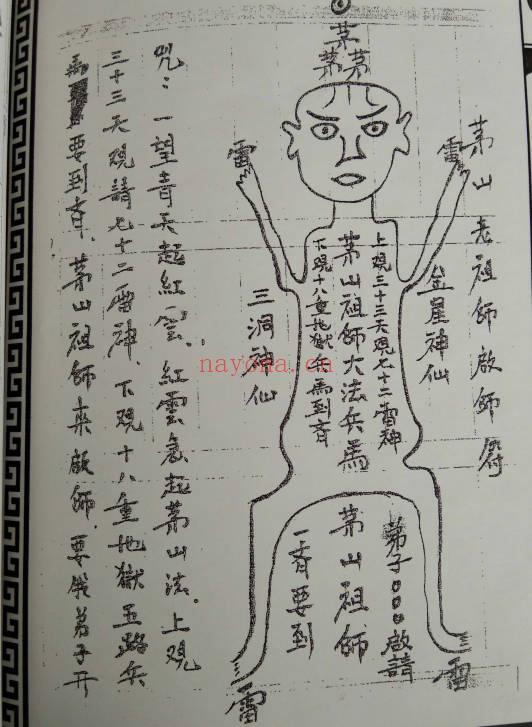 茅山老祖師啟師符
茅
茅茅
雷
雷
金星神仙
三洞神仙
上覌三十三天覌七十二雷神
茅山祖師大法兵馬
下覌十八重地獄兵馬到斉
弟子○○○啟請
茅山祖師
一斉要到
雷
雷
咒：一望青天起紅雲，紅雲急起茅山法，上覌
三十三天覌請七十二雷神，下覌十八重地獄五路兵
馬要到斉，茅山祖師来啟師，要俄弟子开
nayona.cn